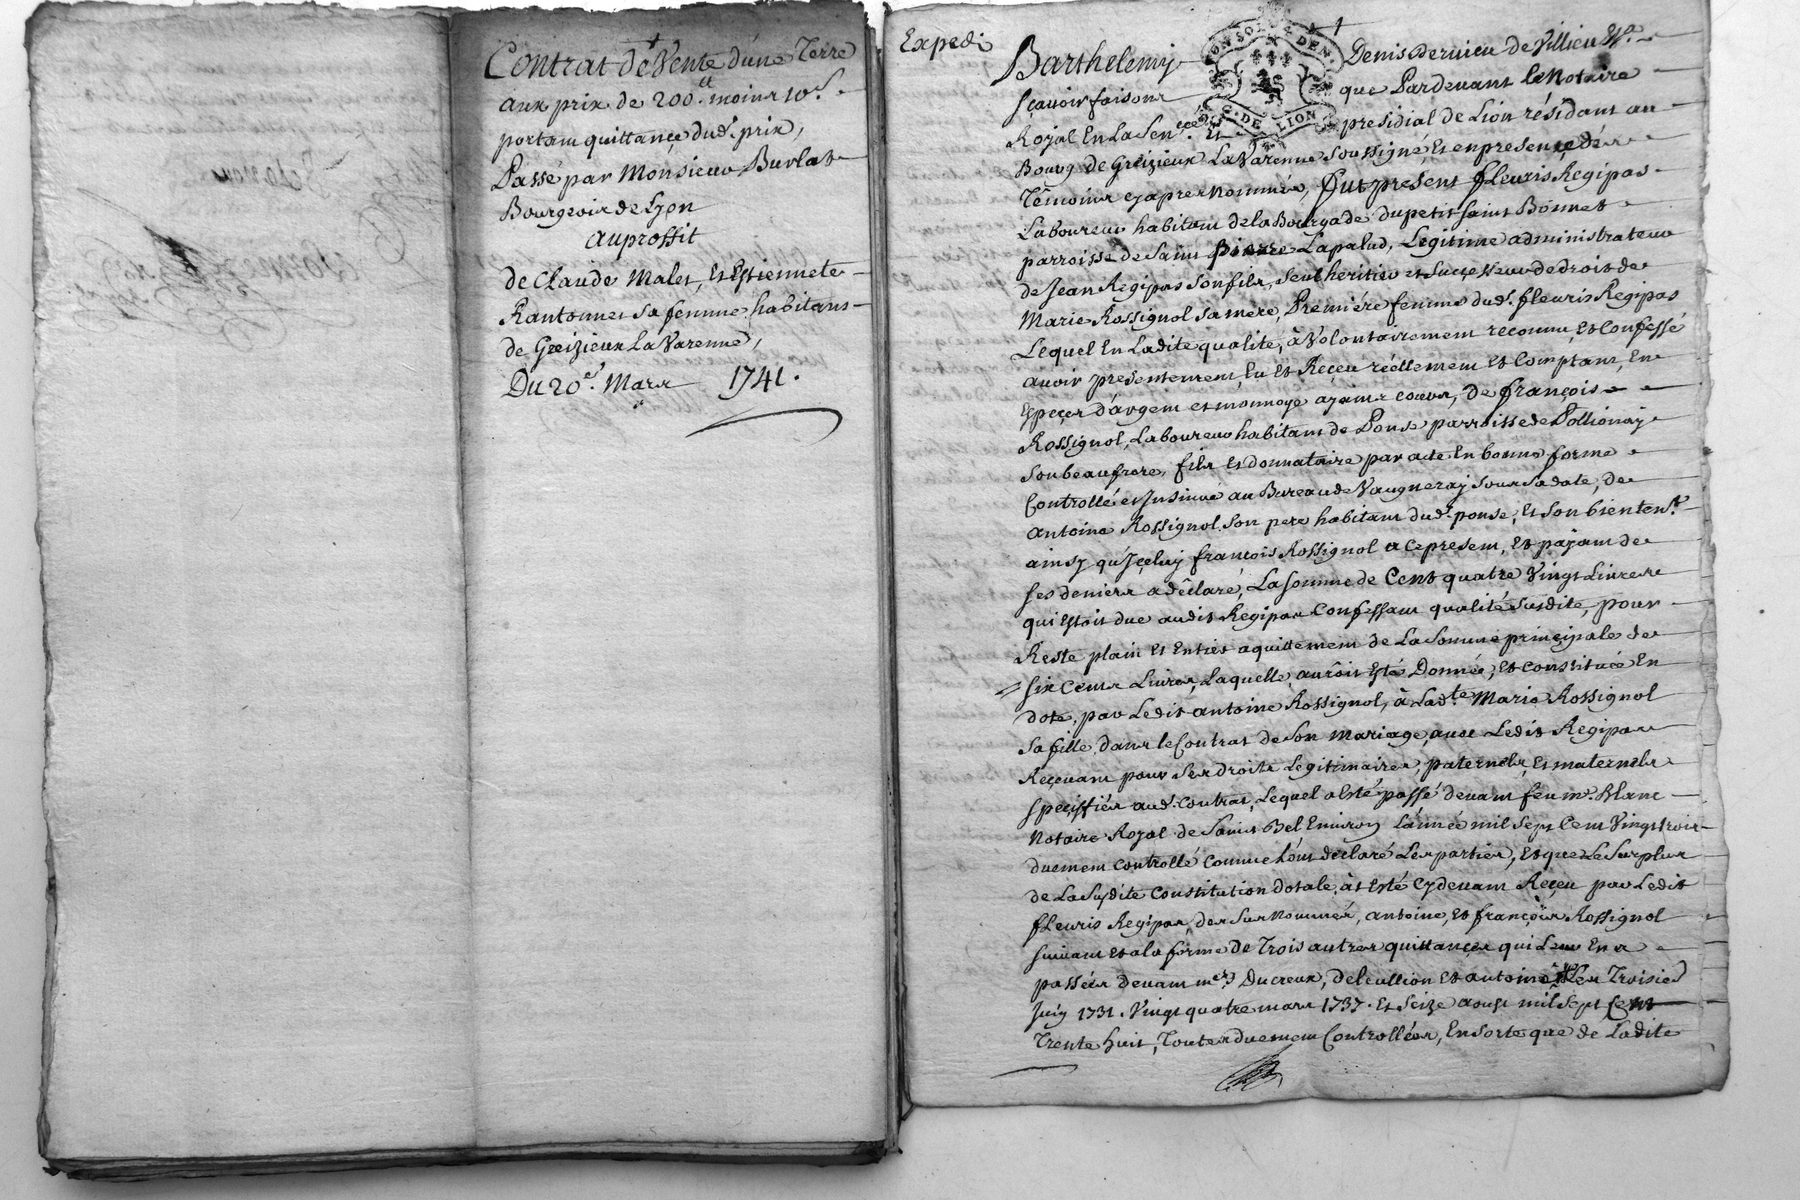 Contrat de Vente d'une Terre
aux prix de 200.tt moins 10.s
portant quittance dud. prix,
Passé par Monsieur Burlat
Bourgeois de Lyon
au proffit
de Claude Malet, et Estiennete
Rantonnet sa femme habitans
de Greizieux La Varenne,
Du 20.e Mars 1741.
Expedi
Barthelemy Denis Dervieu de Villieu Esr.
sçavoir faisons que Pardevant le Notaire
Royal En La Sen.ceé Et presidial de Lion résidant au
Bourg de Greizieux La Varenne soussigné et en presence des
Témoins cy apres nommés, fut present fleuris Regipas
Laboureur habitant de la Bourgade du petit saint Bonnet
parroisse de saint Pierre Lapalud, Legitime administrateur
de Jean Regipas son fils, seul heritier et successeur de droit de
Marie Rossignol sa mere, Premiére femme dud. fleuris Regipas
Lequel En Ladite qualité, à Volontairement reconnu, et Confessé
avoir presentement Eu et Reçeu réellement et Comptant, En
Espeçes d'argent et monnoye ayant cours, de françois
Rossignol, Laboureur habitant de Pouse parroisse de Pollionay
son beaufrere, fils et donnataire par acte En bonne forme
Controllé et Insinué au Bureau de Vaugneray sous sa date, de
antoine Rossignol son pere habitant dud. pouse, et son bientent.r
ainsy qu'Jçeluy francois Rossignol a ce present, et payant de
ses deniers a déclaré, La somme de Cent quatre Vingt Livres
qui Estoit due audit Regipas Confessant qualité susdite, pour
Reste plain et Entier aquittement de La somme principale de
six Cents Livres, Laquelle auroit Esté Donnée, et Constituée En
dote, par Ledit antoine Rossignol, à Lad.te Marie Rossignol
sa fille, dans le Contrat de son Mariage avec Ledit Regipas
Reçevant pour ses droits Legitimaires, paternels, et maternels
speciffiés aud. contrat, Lequel a Esté passé devant feu m.e Blanc
Notaire Royal de Saint Bel Environ L'année mil sept Cent Vingt trois
duement controllé comme L'ont déclaré Les parties, et que Le surplus
de La susdite Constitution dotale, à Esté cy devant Reçeu par Ledit
fleuris Regipas, des sus nommés, antoine, et françois Rossignol
suivant et a la forme de trois autres quittances qui Leur En a
passées devant m.es Ducreux, delcullion et antoine Les Troisie
Juin 1731. Vingt quatre mars 1737. et seize aoust mil sept cent
Trente huit, Toutes duement Controllées, En sorte que de Ladite